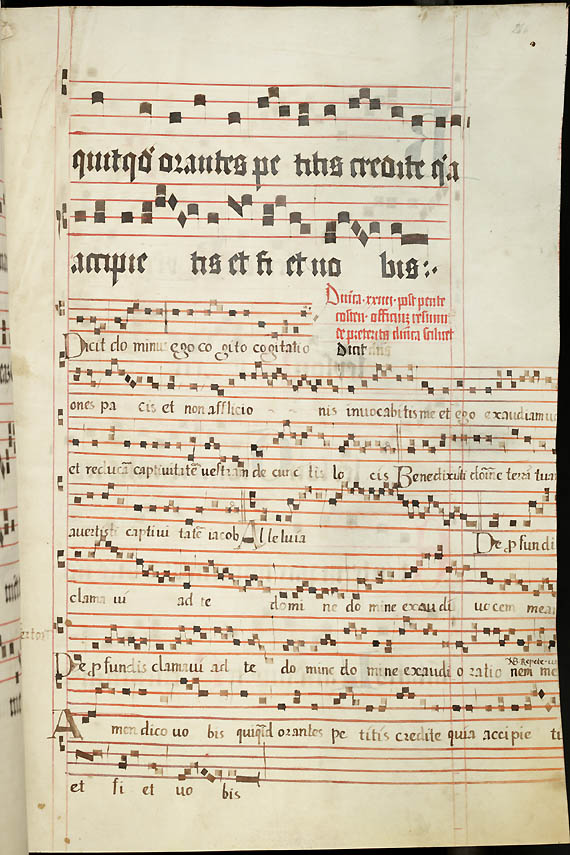 quitqd orantes pe titis credite qa
accipie tis et fi et uo bis:.
Dnica xxiiii post pente
costen officiū resum
te preterita dnica scilicet
Dicit dns
Dicit do minus ego co gito cogitatio
ones pa cis et non afflictio nis inuocabitis me et ego exaudiam uo
et reducā captiuitatē uestram de cunc tis lo cis Benedixisti domine terrā tuam
auertisti captiui tatē iacob Alleluia De pfundi
clama ui ad te domi ne do mine exau di uocem mea
De pfundis clamaui ad te do mine do mine exaudi o ratio nem me
NB Repete
A men dico uo bis quiqd orantes pe titis credite quia accipie ti
et fi et uo bis